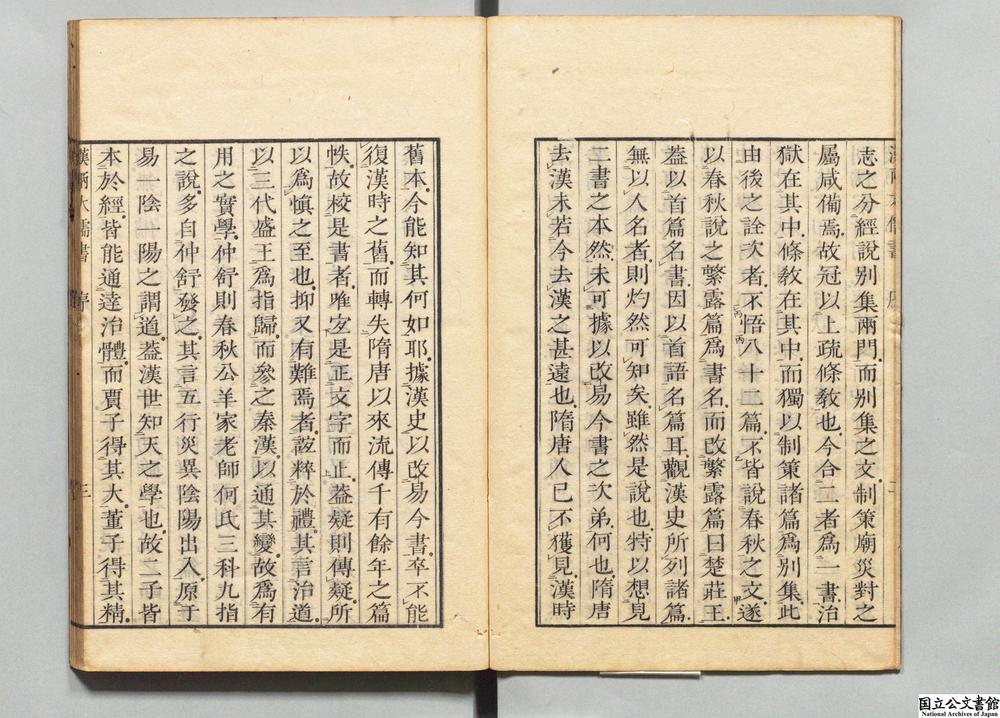 志之分經說別集兩門而別集之文制策廟災對之
屬咸備焉故冠以上疏條教也今合二者為一書治
獄在其中條教在其中而獨以制策諸篇為別集此
由後之詮次者不悟八十二篇不皆說春秋之文遂
以春秋說之繁露篇為書名而改繁露篇曰楚莊王
蓋以首篇名書因以首語名篇耳觀漢史所列諸篇
無以人名者則灼然可知矣雖然是說也特以想見
二書之本然未可據以改易今書之次弟何也隋唐
去漢未若今去漢之甚遠也隋唐人已不獲見漢時
舊本今能知其何如耶據漢史以改易今書卒不能
復漢時之舊而轉失隋唐以來流傳千有餘年之篇
帙故校是書者唯宜是正文字而止蓋疑則傳疑所
以為慎之至也抑又有難焉者誼粹於禮其言治道
以三代盛王為指歸而參之秦漢以通其變故為有
用之實學仲舒則春秋公羊家老師何氏三科九指
之說多自仲舒發之其言五行災異陰陽出入原于
易一陰一陽之謂道蓋漢世知天之學也故二子皆
本於經皆能通達治體而賈子得其大董子得其精
漢兩大儒書 序 三
国立公文書館
National Archives of Japan